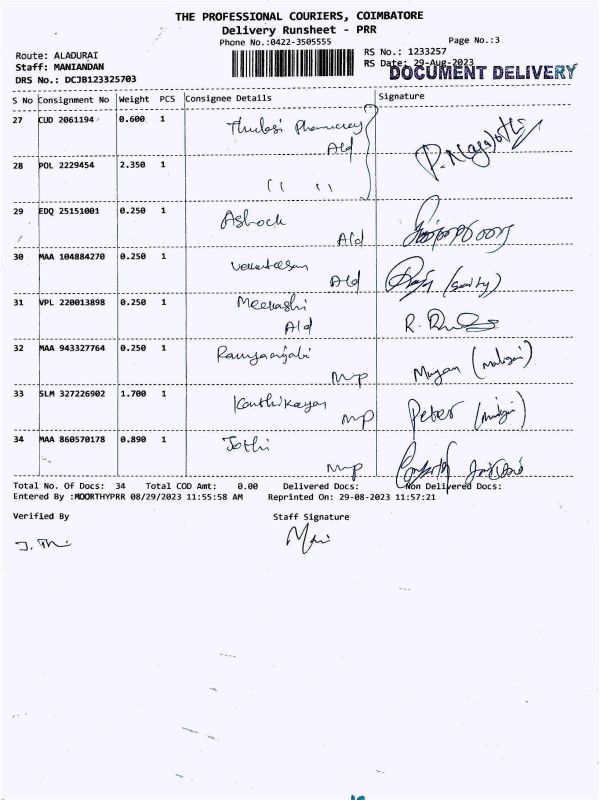 THE PROFESSIONAL COURIERS, COIMBATORE
Delivery Runsheet - PRR
Phone No.:0422-3505555
Page No.:3
Route: ALADURAI
RS No.: 1233257
Staff: MANIANDAN
RS Date: 29-Aug-2023
DRS No.: DCJB123325703
DOCUMENT DELIVERY
S No Consignment No Weight PCS Consignee Details Signature
27 CUD 2061194 0.600 1 Thulasi Pharmacy
Ald
28 POL 2229454 2.350 1 " "
29 EDQ 25151001 0.250 1 Ashock
Ald
30 MAA 104884270 0.250 1
Ald
31 VPL 220013898 0.250 1 Meenashi
Ald R.
32 MAA 943327764 0.250 1
MP
33 SLM 327226902 1.700 1 Kanthikayan Peter
MP
34 MAA 860570178 0.890 1 Jothi
MP
Total No. Of Docs: 34 Total COD Amt: 0.00 Delivered Docs: Non Delivered Docs:
Entered By :MOORTHYPRR 08/29/2023 11:55:58 AM Reprinted On: 29-08-2023 11:57:21
Verified By Staff Signature
Mani